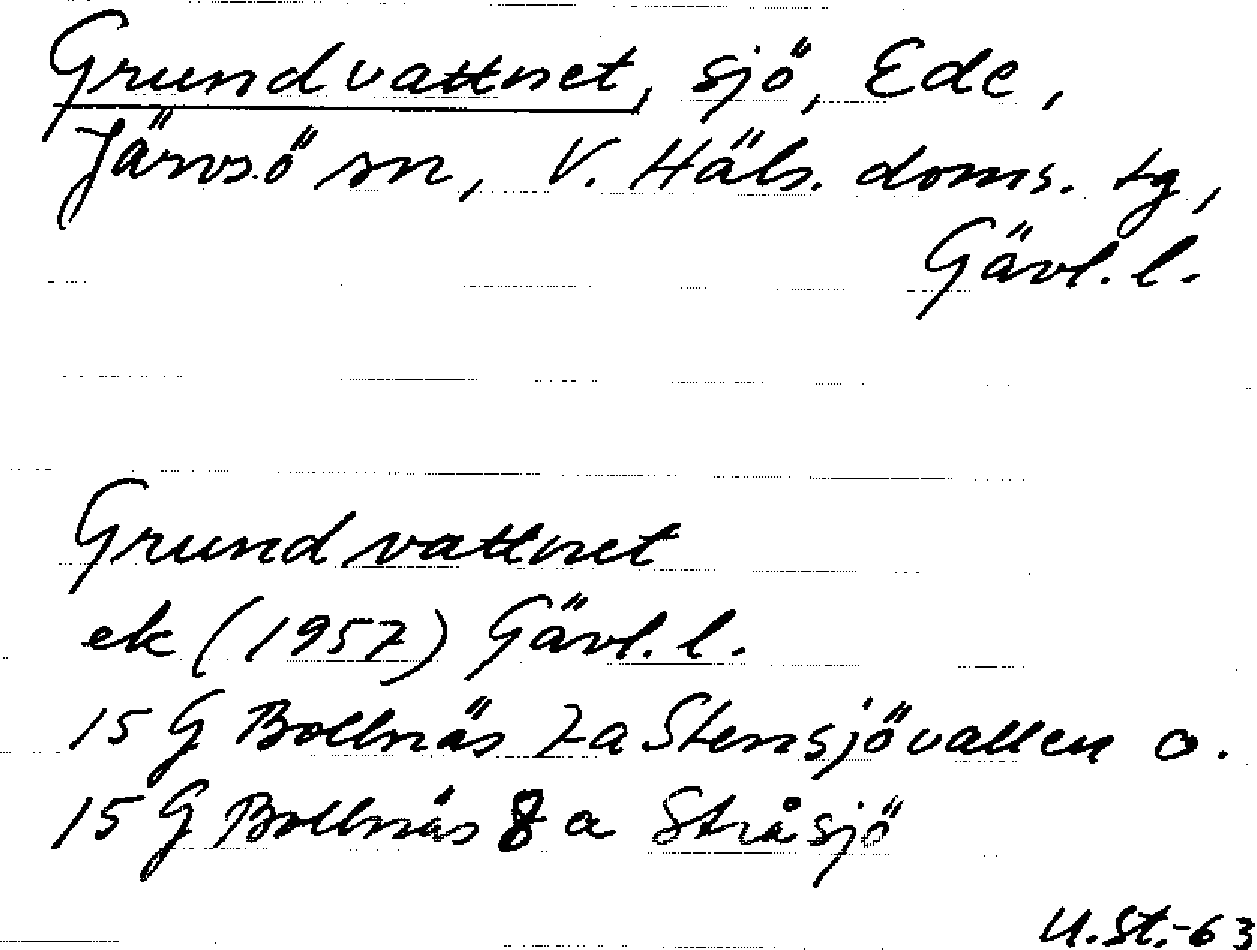 Grundvattnet, sjö, Ede,
Järvsö sn, V. Häls. doms. tg,
Gävl. l.
Grundvattnet
ek (1957) Gävl. l.
15 G Bollnäs 7a Stensjövallen o.
15 G Bollnäs 8 a Stråsjö
U.St.-63